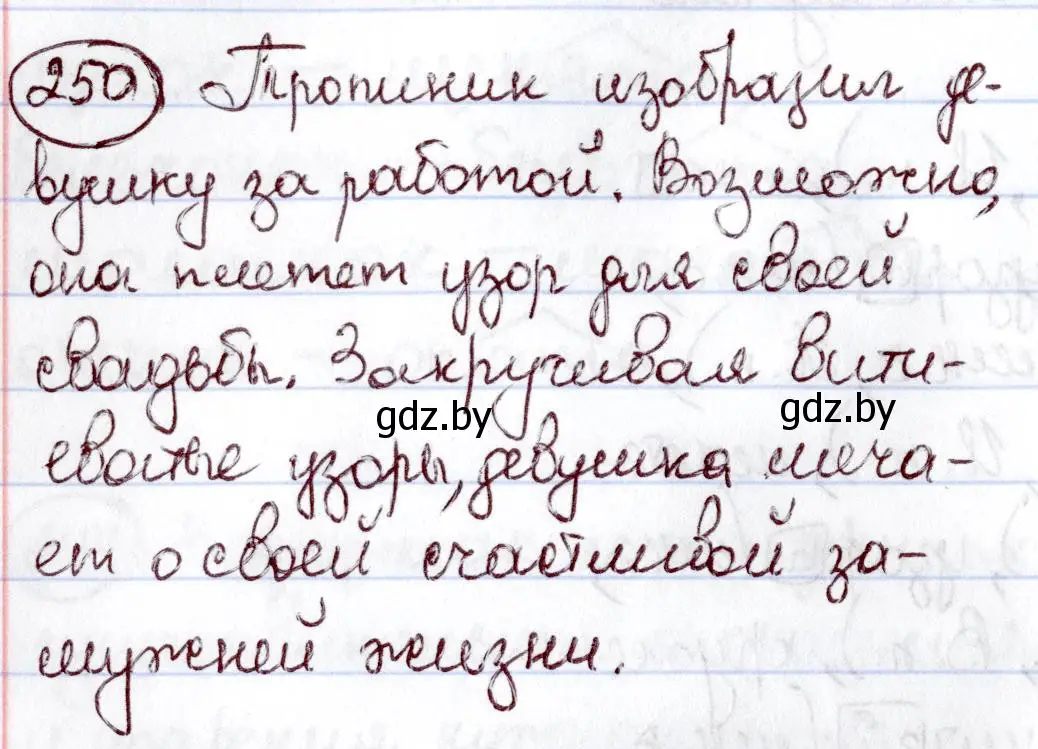 250 Тропинин изобразил де-
вушку за работой. Возможно,
она плетет узор для своей
свадьбы. Закручивая вити-
еватые узоры, девушка меча-
ет о своей счастливой за-
мужней жизни.
gdz.by
gdz.by